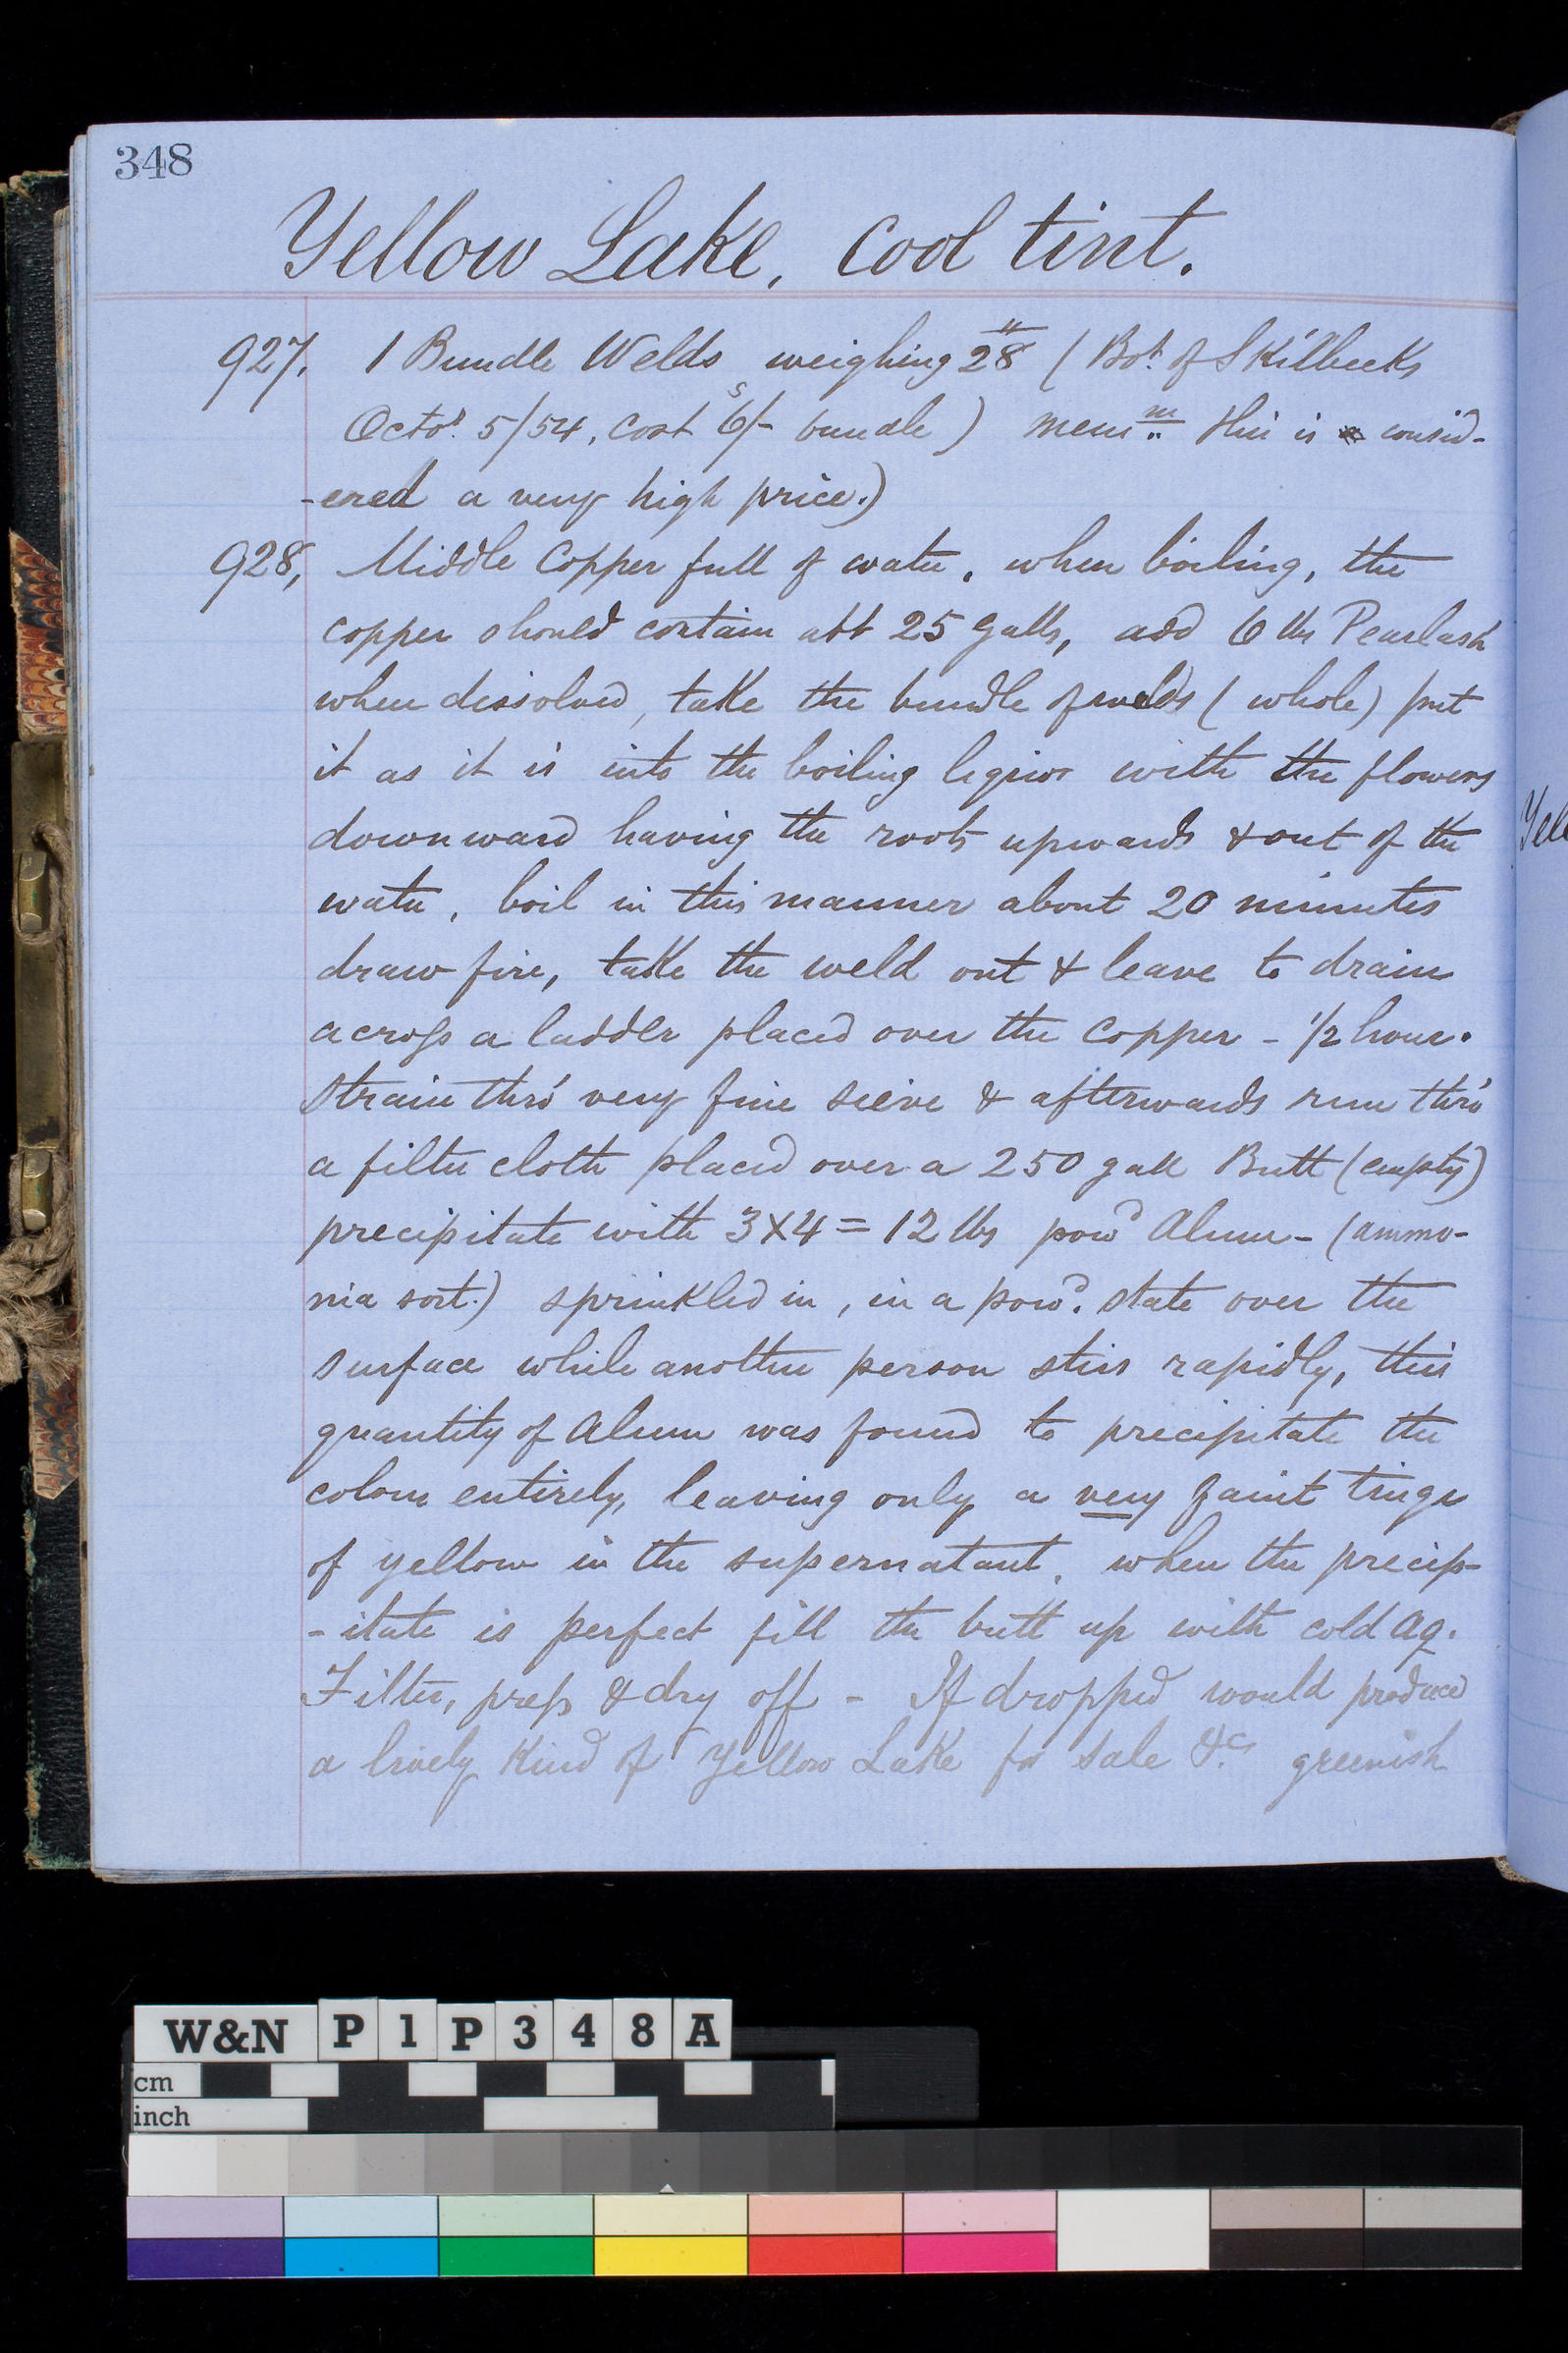 348
Yellow Lake, Cool tint.
927. 1 Bundle Welds weighing 28 lb (Bot. of Skilbecks
Octor. 5/54, cost 6s/- bundle) Memm.. this is consid-
-ered a very high price.)
928, Middle Copper full of water, when boiling, the
copper should contain abt 25 galls, add 6 lbs Pearlash
when dissolved, take the bundle of welds (whole) put
it as it is into the boiling liquor with the flowers
downward having the roots upwards & out of the
water, boil in this manner about 20 minutes
draw fire, take the weld out & leave to drain
across a ladder placed over the Copper - 1/2 hour.
Strain thro' very fine sieve & afterwards run thro'
a filter cloth placed over a 250 gall Butt (empty)
precipitate with 3X4 = 12 lbs powd Alum - (ammo-
nia sort.) sprinkled in, in a powd. state over the
surface while another person stirs rapidly, this
quantity of Alum was found to precipitate the
colour entirely, leaving only a very faint tinge
of yellow in the supernatant. when the precip-
-itate is perfect fill the butt up with cold Aq.
Filter, press & dry off - If dropped would produce
a lively kind of Yellow Lake for sale &c. greenish
Yell
W&N P1P348A
cm
inch